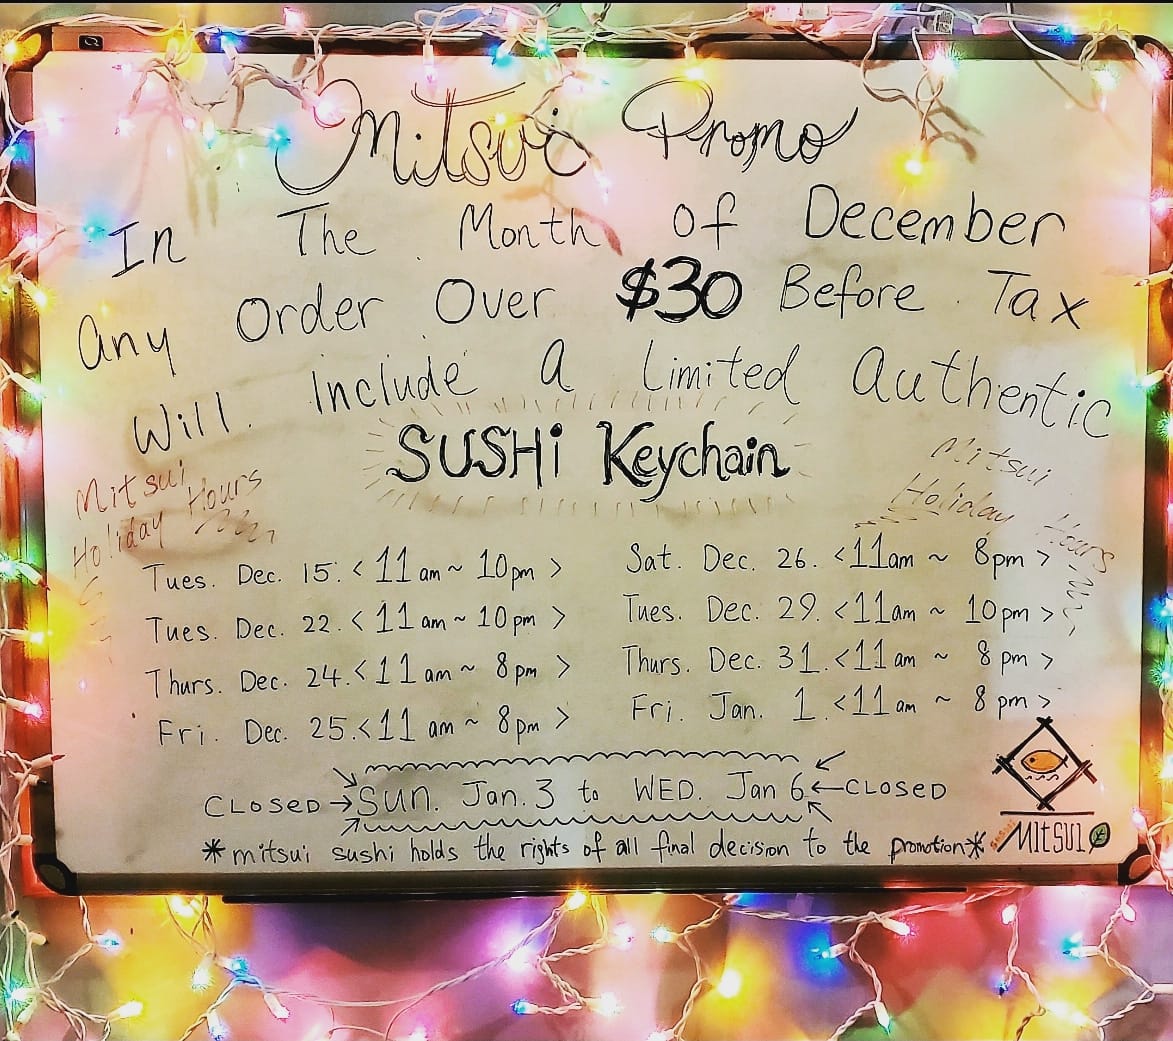 Mitsui Promo
In The Month Of December
Any Order Over $30 Before Tax
Will Include A Limited Authentic
SUSHi Keychain
Mitsui
Holiday Hours
Mitsui
Holiday Hours
Tues. Dec. 15. < 11 am ~ 10pm >
Tues. Dec. 22. < 11 am ~ 10 pm >
Thurs. Dec. 24. < 11 am ~ 8 pm >
Fri. Dec. 25. < 11 am ~ 8pm >
Sat. Dec. 26. < 11am ~ 8pm >
Tues. Dec. 29. < 11am ~ 10 pm >
Thurs. Dec. 31. < 11 am ~ 8 pm >
Fri. Jan. 1. < 11 am ~ 8 pm >
CLOSED → Sun. Jan. 3 to WED. Jan 6 ← CLOSED
*mitsui sushi holds the rights of all final decision to the promotion*
MITSUI